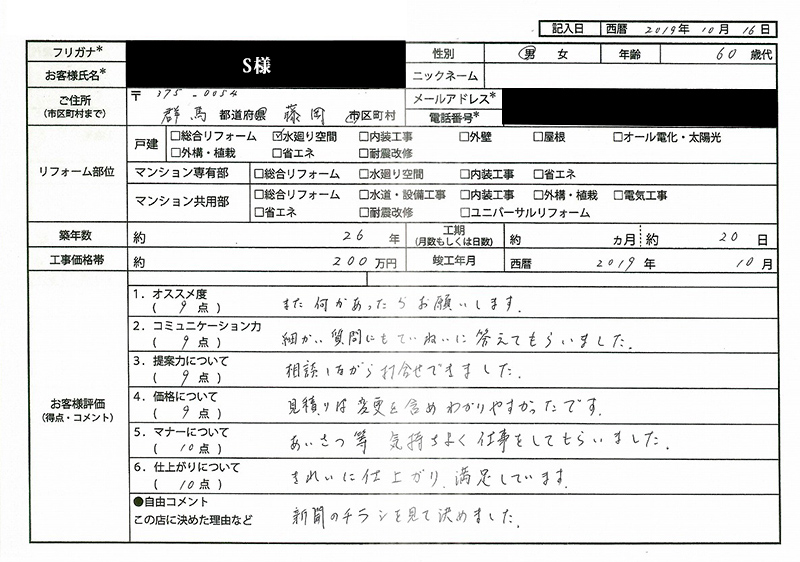 記入日 西暦 2019年 10月 16日
フリガナ* S様 性別 男 女 年齢 60 歳代
お客様氏名* ニックネーム
ご住所 (市区町村まで) 〒 375-0054 群馬 都道府県 藤岡 市区町村 メールアドレス*
電話番号*
リフォーム部位 戸建 □総合リフォーム ☑水廻り空間 □内装工事 □外壁 □屋根 □オール電化・太陽光
□外構・植栽 □省エネ □耐震改修
マンション専有部 □総合リフォーム □水廻り空間 □内装工事 □省エネ
マンション共用部 □総合リフォーム □水道・設備工事 □内装工事 □外構・植栽 □電気工事
□省エネ □耐震改修 □ユニバーサルリフォーム
築年数 約 26 年 工期 (月数もしくは日数) 約 ヵ月 約 20 日
工事価格帯 約 200 万円 竣工年月 西暦 2019 年 10 月
お客様評価 (得点・コメント)
1．オススメ度
( 9 点 ) また何かあったらお願いします.
2．コミュニケーション力
( 9 点 ) 細かい質問にもていねいに答えてもらいました.
3．提案力について
( 9 点 ) 相談しながら打合せできました.
4．価格について
( 9 点 ) 見積りは変更を含めわかりやすかったです.
5．マナーについて
( 10 点 ) あいさつ等 気持ちよく仕事をしてもらいました.
6．仕上がりについて
( 10 点 ) きれいに仕上がり.満足しています.
●自由コメント
この店に決めた理由など 新聞のチラシを見て決めました.